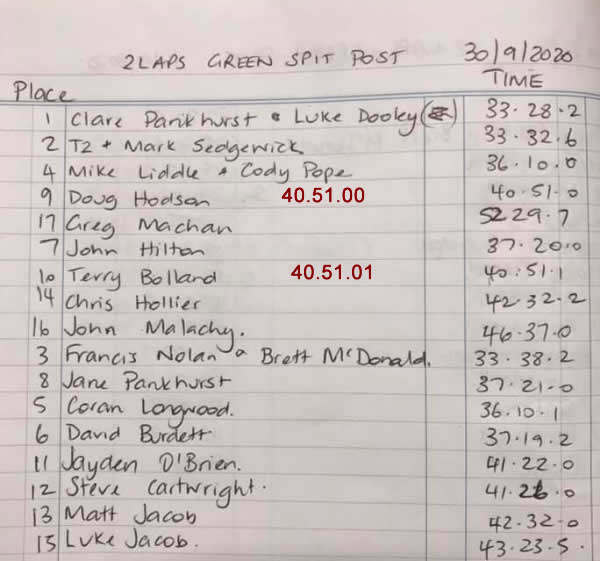 2 LAPS GREEN SPIT POST 30/9/2020
Place TIME
1 Clare Pankhurst & Luke Dooley 33.28.2
2 T2 + Mark Sedgewick 33.32.6
4 Mike Liddle & Cody Pope 36.10.0
9 Doug Hodson 40.51.00 40.51.0
17 Greg Machan 52 29.7
7 John Hilton 37.20.0
10 Terry Bolland 40.51.01 40:51.1
14 Chris Hollier 42.32.2
16 John Malachy. 46.37.0
3 Francis Nolan & Brett McDonald. 33.38.2
8 Jane Pankhurst 37.21.0
5 Coran Longwood. 36.10.1
6 David Burdett 37.19.2
11 Jayden O'Brien. 41.22.0
12 Steve Cartwright. 41.26.0
13 Matt Jacob 42.32.0
15 Luke Jacob. 43.23.5.